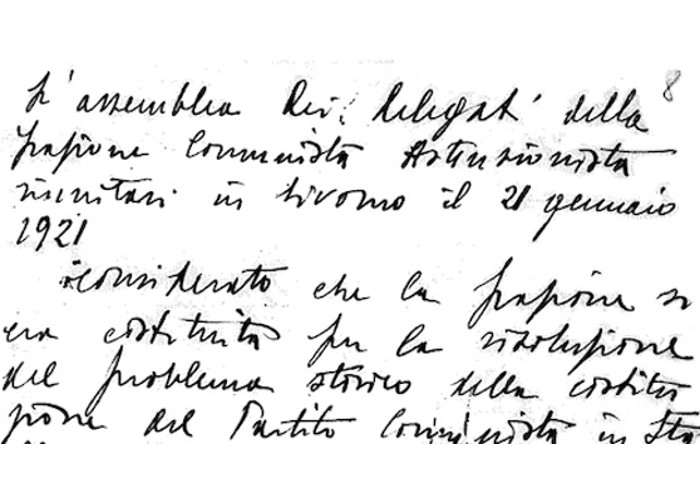 8
L'assemblea dei delegati della
frazione Comunista Astensionista
riunitasi in Livorno il 21 gennaio
1921
considerato che la frazione si
era costituita per la risoluzione
del problema storico della costitu
zione del Partito Comunista in Ita